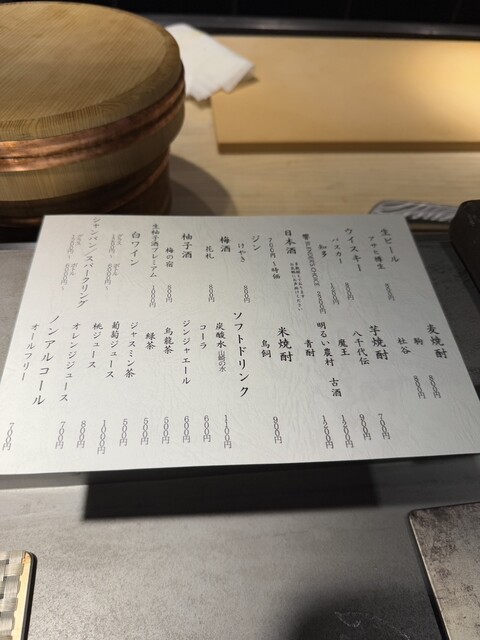 生ビール
アサヒ樽生
ウイスキー
バスカー
知多
響
日本酒
700円〜時価
ジン
けやき 800円
梅酒
花札 800円
柚子酒
梅の宿 800円
生柚子酒プレミアム 1000円
白ワイン
グラス
ボトル
シャンパン/スパークリング
グラス
ボトル
麦焼酎
駒 800円
杜谷 800円
芋焼酎 700円
八千代伝 900円
魔王 1200円
明るい農村 古酒 1200円
青酎
米焼酎
鳥飼 900円
ソフトドリンク
炭酸水 山崎の水 1100円
コーラ 600円
ジンジャエール 600円
烏龍茶 500円
緑茶 500円
ジャスミン茶 500円
葡萄ジュース 1000円
桃ジュース 800円
オレンジジュース 700円
ノンアルコール
オールフリー 700円